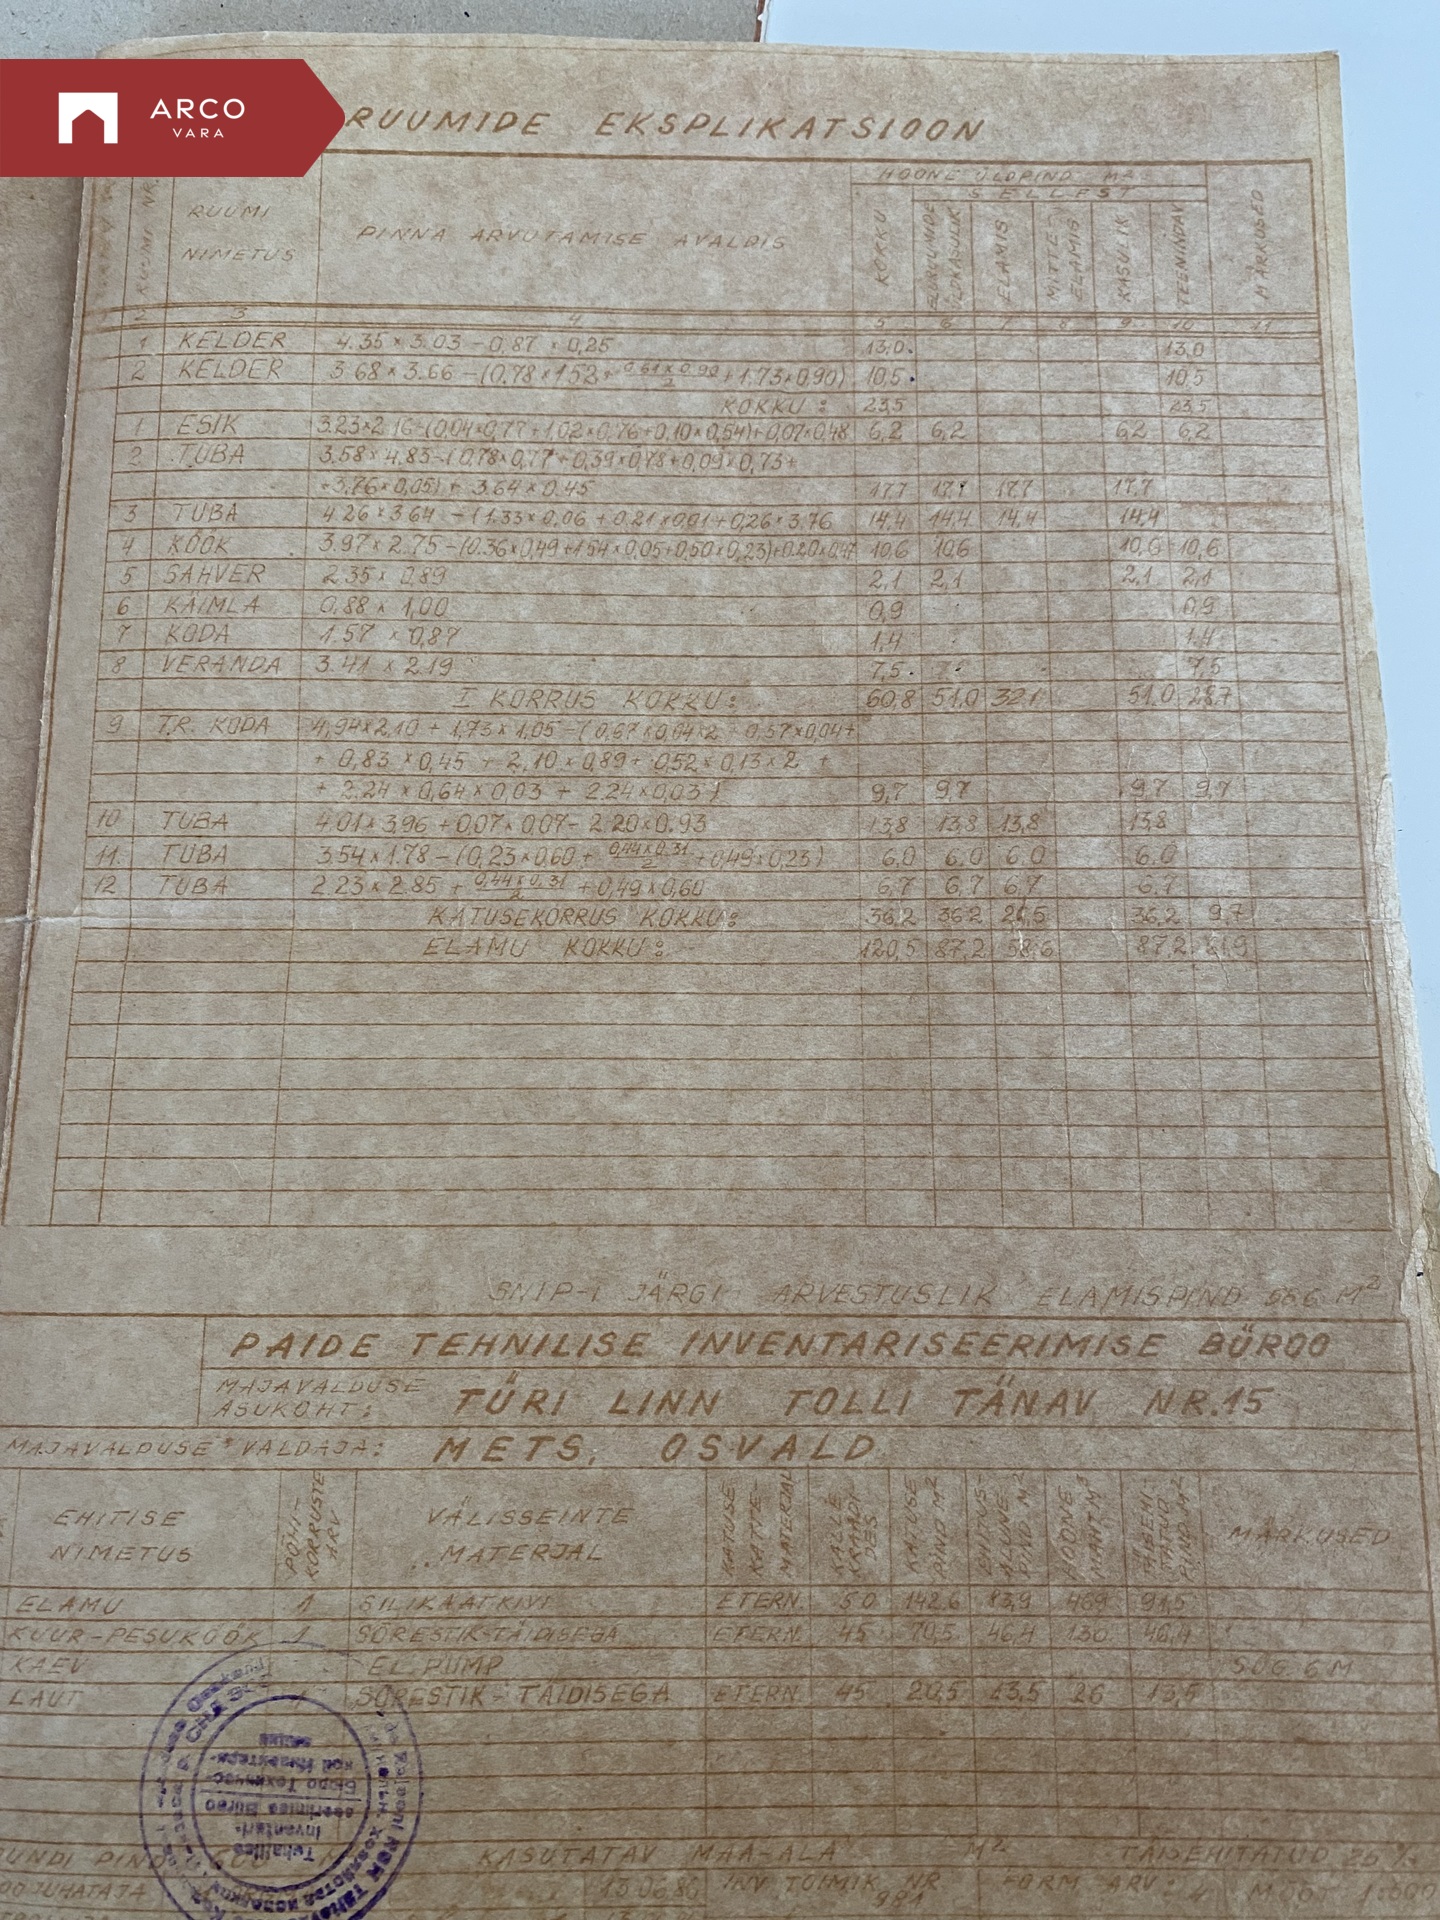 ARCO
VARA
RUUMIDE EKSPLIKATSIOON
RUUMI NR.
RUUMI NIMETUS
PINNA ARVUTAMISE AVALDIS
HOONE ÜLDPIND M²
SELLEST
KOKKU
ELURUUMIDE ÜLDKASULIK
ELAMIS
MITTE ELAMIS
KASULIK
TEENINDAV
MÄRKUSED
2 3 4 5 6 7 8 9 10 11
1 KELDER 4.35 × 3.03 - 0,87 × 0,25 13,0 13,0
2 KELDER 3.68 × 3.66 - (0,78 × 1.52 + 0.61×0.90/2 + 1.73×0.90) 10,5 10,5
KOKKU: 23,5 23,5
1 ESIK 3.23×2.16-(0,04×0,77+1,02×0,76+0,10×0,54)+0,07×0,48 6,2 6,2 6,2 6,2
2 TUBA 3.58×4.83-(0,78×0,77+0,39×0,78+0,09×0,73+
+3.76×0,05) + 3.64×0.45 17,7 17,7 17,7 17,7
3 TUBA 4.26×3.64 - (1.33×0,06 + 0.21×0,01+0,26×3.76 14,4 14,4 14,4 14,4
4 KÖÖK 3.97×2.75-(0.36×0,49+1.54×0,05+0,50×0,23)+0.20×0,47 10,6 10,6 10,6 10,6
5 SAHVER 2.35 × 0.89 2,1 2,1 2,1 2,1
6 KÄIMLA 0,88 × 1,00 0,9 0,9
7 KODA 1.57 × 0,87 1,4 1,4
8 VERANDA 3.41 × 2.19 7,5 7,5
I KORRUS KOKKU: 60,8 51,0 32,1 51,0 28,7
9 TR. KODA 4,94×2,10 + 1,73×1,05 -(0,67×0,64×2 + 0,57×0,04+
+ 0,83 ×0,45 + 2,10×0,89+ 0,52×0,13×2 +
+ 2.24 ×0,64×0,03 + 2.24×0,03) 9,7 9,7 9,7 9,7
10 TUBA 4.01×3.96 +0,07×0,07- 2.20×0.93 13,8 13,8 13,8 13,8
11. TUBA 3.54×1.78 - (0,23×0,60 + 0,44×0,31/2 +0,49×0,23) 6,0 6,0 6,0 6,0
12 TUBA 2.23×2.85 + 0,44×0,31/2 +0,49×0,60 6,7 6,7 6,7 6,7
KATUSEKORRUS KOKKU: 36,2 36,2 26,5 36,2 9,7
ELAMU KOKKU: 120,5 87,2 58,6 87,2 61,9
SNIP-I JÄRGI ARVESTUSLIK ELAMISPIND M²
PAIDE TEHNILISE INVENTARISEERIMISE BÜROO
MAJAVALDUSE ASUKOHT: TÜRI LINN TOLLI TÄNAV NR.15
MAJAVALDUSE VALDAJA: METS, OSVALD
EHITISE NIMETUS
PÕHI-KORRUSTE ARV
VÄLISSEINTE MATERJAL
KATUSE-KATTE-MATERJAL
KALLE KRAADI-DES
KATUSE PIND M²
EHITUS-ALUNE PIND M²
HOONE MAHT M³
TÄISEHI-TATUD PIND M²
MÄRKUSED
ELAMU 1 SILIKAATKIVI ETERN. 50 142,6 83,9 469 91,5
KUUR-PESUKÖÖK 1 SÕRESTIK-TÄIDISEGA ETERN. 45 70,5 46,4 130 46,4
KAEV EL.PUMP SÜG. 6M
LAUT 1 SÕRESTIK-TÄIDISEGA ETERN. 45 20,5 13,5 26 13,5
Tehnilise Inventari-seerimise Büroo
Бюро Техничес-кой Инвентари-
KASUTATAV MAA-ALA M² TÄISEHITATUD 26 %
JUHATAJA 13.06.86 INV. TOIMIK NR. FORM. ARV: 4 MÕÕT 1:500